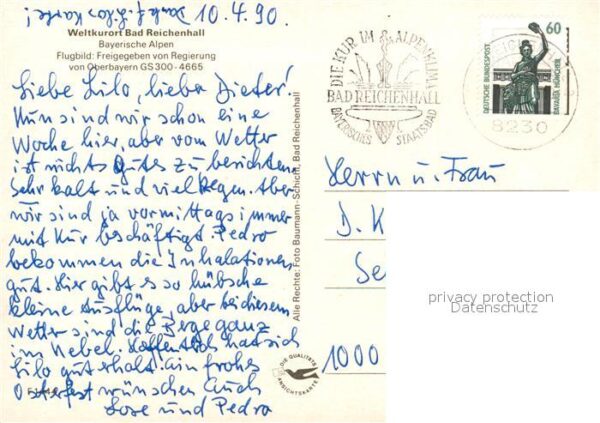 Dank f. Lilos Karte! 10.4.90.
Weltkurort Bad Reichenhall
Bayerische Alpen
Flugbild: Freigegeben von Regierung
von Oberbayern GS 300-4665
Liebe Lilo, lieber Dieter!
Nun sind wir schon eine
Woche hier, aber vom Wetter
ist nichts Gutes zu berichten.
Sehr kalt und viel Regen. Aber
wir sind ja vormittags immer
mit Kur beschäftigt. Pedro
bekommen die Inhalationen
gut. Hier gibt es so hübsche
kleine Ausflüge, aber bei diesem
Wetter sind die Berge ganz
im Nebel. Hoffentlich hat sich
Lilo gut erholt. Ein frohes
Osterfest wünschen Euch
Lore und Pedro
Alle Rechte: Foto Baumann-Schicht, Bad Reichenhall
DIE KUR IM ALPENKLIMA
BAD REICHENHALL
BAYERISCHES STAATSBAD
8230
60
DEUTSCHE BUNDESPOST
BAVARIA MÜNCHEN
Herrn u. Frau
D. K
Se
1000
privacy protection
Datenschutz
DIE QUALITÄTS
ANSICHTSKARTE